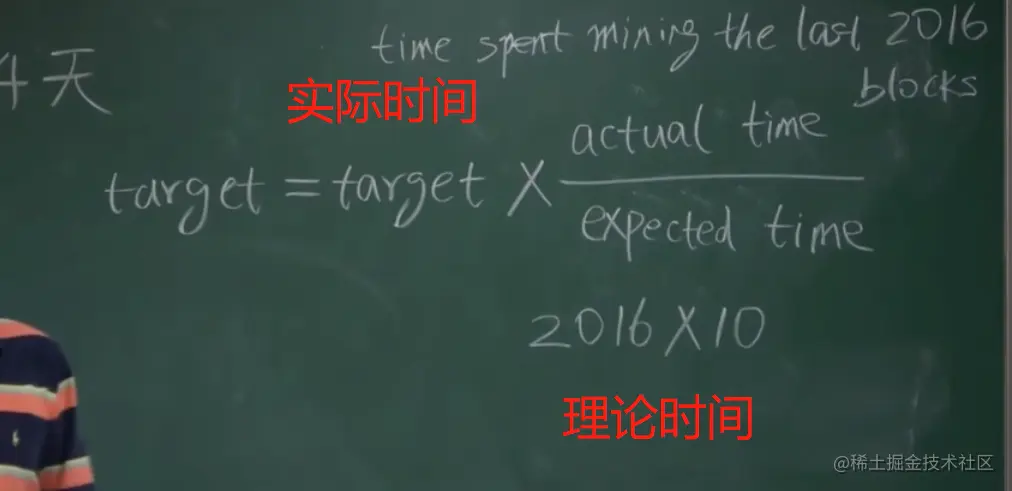 time spent mining the last 2016
blocks
4天
实际时间
actual time
target = target X
expected time
2016 X 10
理论时间
@稀土掘金技术社区